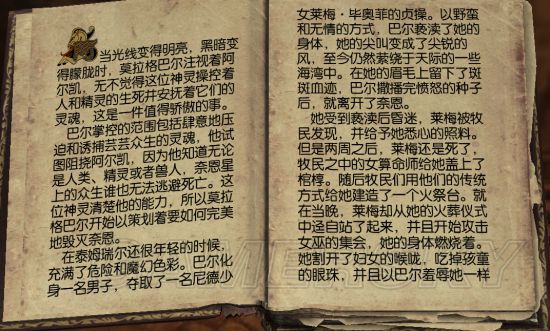 当光线变得明亮，黑暗变
得朦胧时，莫拉格巴尔注视着阿
尔凯，无不觉得这位神灵操控着
人和精灵的生死并安抚着它们的
灵魂，这是一件值得骄傲的事。
巴尔掌控的范围包括肆意地压
迫和诱捕芸芸众生的灵魂，他试
图阻挠阿尔凯，因为他知道无论
是人类、精灵或者兽人，奈恩星
上的众生谁也无法逃避死亡。这
位神灵清楚他的能力，所以莫拉
格巴尔开始以策划着要如何完美
地毁灭奈恩。
在泰姆瑞尔还很年轻的时候，
充满了危险和魔幻色彩。巴尔化
身一名男子，夺取了一名尼德少
女莱梅·毕奥菲的贞操。以野蛮
和无情的方式，巴尔亵渎了她的
身体，她的尖叫变成了尖锐的
风，至今仍然萦绕于天际的一些
海湾中。在她的眉毛上留下了斑
斑血迹，巴尔撒播完愤怒的种子
后，就离开了奈恩。
她受到亵渎后昏迷，莱梅被牧
民发现，并给予她悉心的照料。
但是两周之后，莱梅还是死了，
牧民之中的女算命师给她盖上了
棺椁。随后牧民们用他们的传统
方式给她建造了一个火祭台。就
在当晚，莱梅却从她的火葬仪式
中迳自站了起来，并且开始攻击
女巫的集会，她的身体燃烧着。
她割开了妇女的喉咙，吃掉孩童
的眼珠，并且以巴尔羞辱她一样